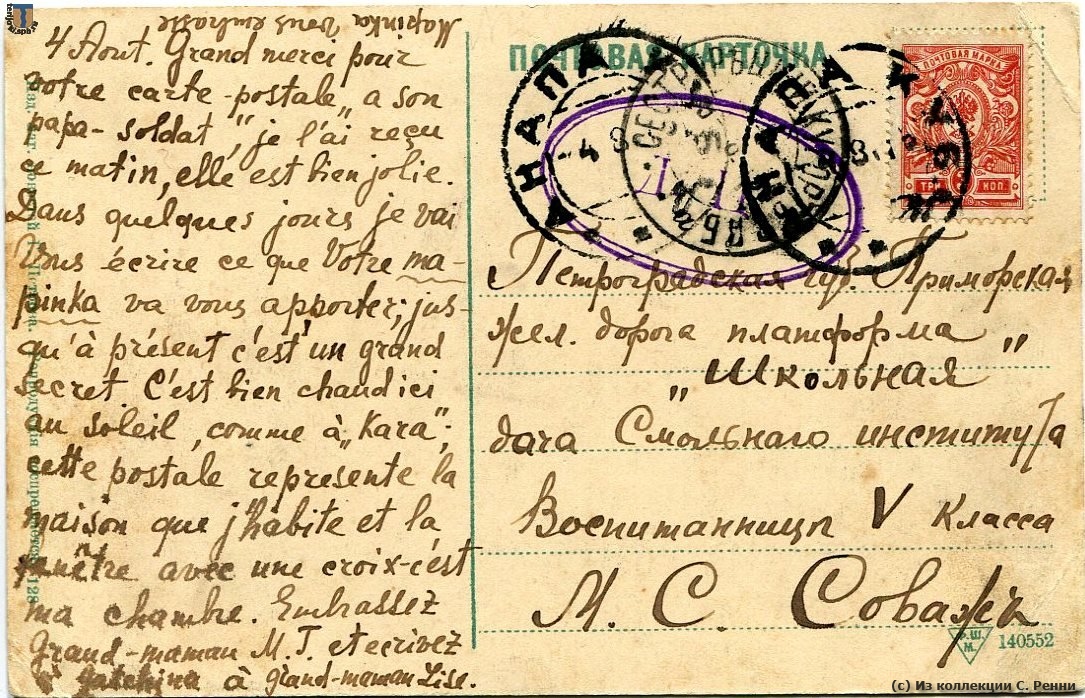 Маріпка vous embrasse
4 Aout. Grand merci pour
votre carte-postale „a son
papa-soldat", je l'ai reçu
ce matin, elle est bien jolie.
Dans quelques jours je vai
Vous écrire ce que Votre ma-
pinka va vous apporter; jus-
qu'à présent c'est un grand
secret. C'est bien chaud ici
au soleil, comme à „Kara";
cette postale represente la
maison que j'habite et la
fenêtre avec une croix-c'est
ma chambre. Embrassez
Grand-maman M. T. et ecrivez
à Gatchina à grand-maman Lise.
ПОЧТОВАЯ КАРТОЧКА
АНАПА КУБ.
АНАПА КУБ.
ПОЧТОВАЯ МАРКА
ТРИ КОП.
Петроградская губ. Приморская
жел. дорога платформа
„Школьная"
дача Смольнаго института
Воспитанницы V класса
М. С. Соважъ
Р.Ш.М. 140552
terijoki.spb.ru
(с) Из коллекции С. Ренни